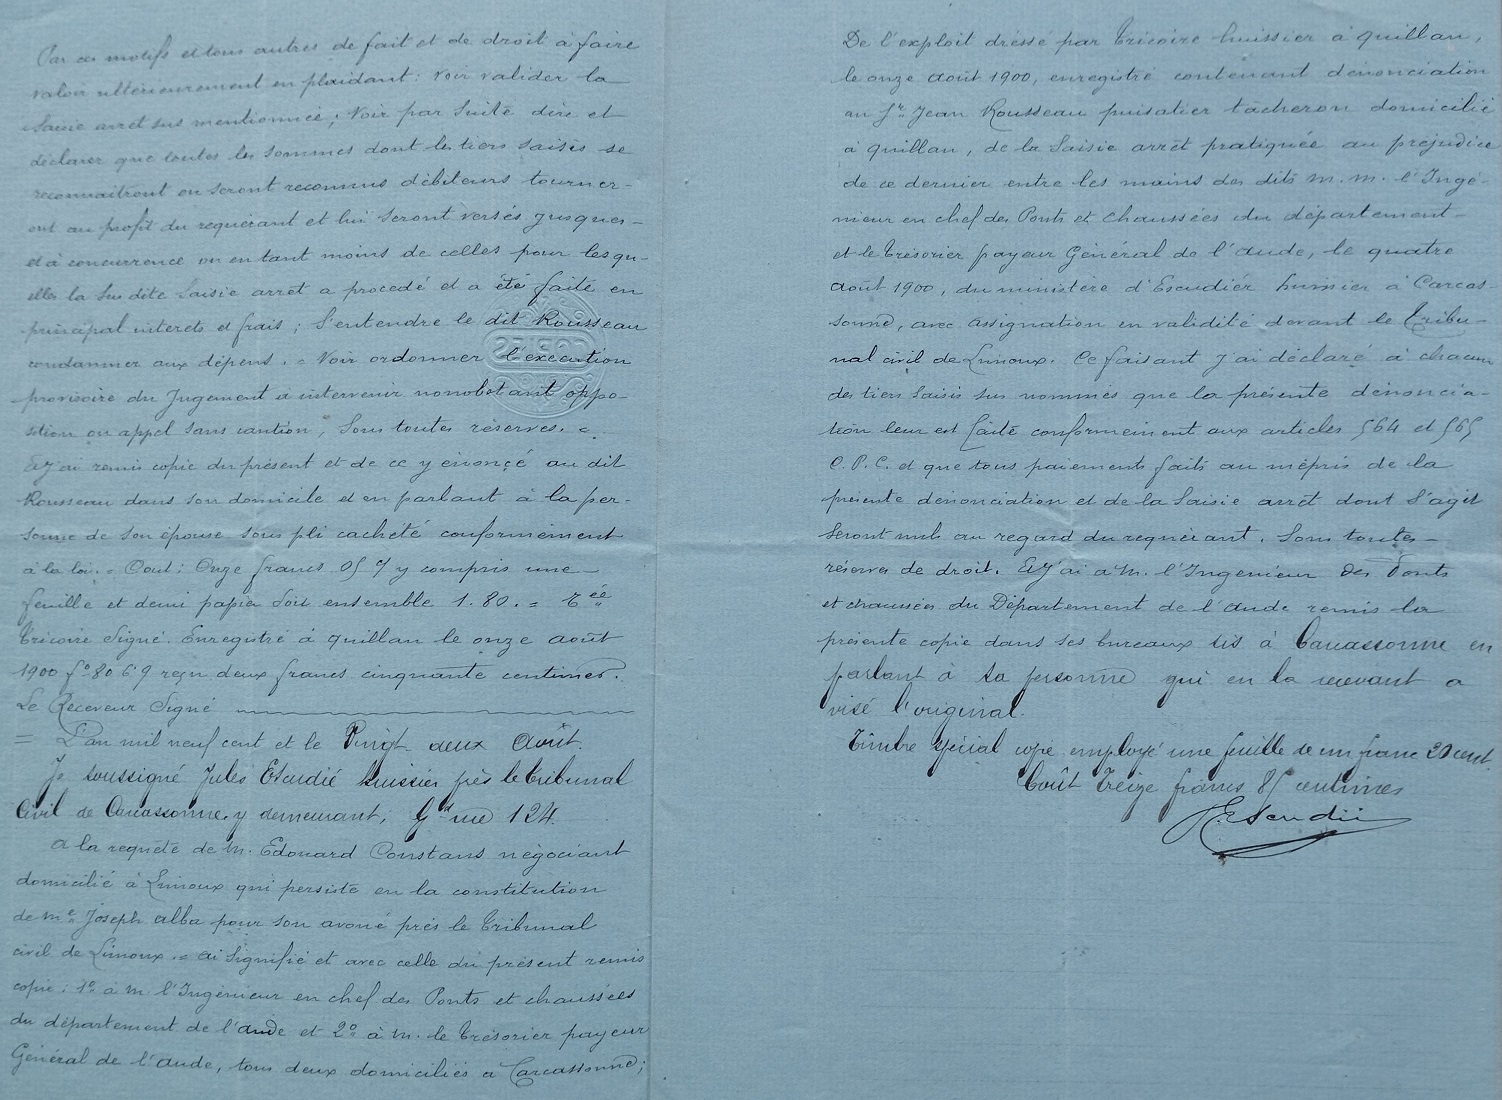 Car ces motifs et tous autres de fait et de droit à faire
valoir ultérieurement en plaidant : voir valider la
saisie arrêt sus mentionnée ; voir par suite dire et
déclarer que toutes les sommes dont les tiers saisis se
reconnaitront ou seront reconnus débiteurs tourner-
ont au profit du requérant et lui seront versés jusques-
et à concurrence ou en tant moins de celles pour lesqu-
elles la sus dite saisie arrêt a procedé et a été faite en
principal interets et frais ; S'entendre le dit Rousseau
condamner aux dépens. = Voir ordonner l'exécution
provisoire du Jugement à intervenir nonobstant oppo-
sition ou appel sans caution, Sous toutes réserves. =
Et j'ai remis copie du présent et de ce y énoncé au dit
Rousseau dans son domicile et en parlant à la per-
sonne de son épouse sous pli cacheté conformément
à la loi. = Cout : Onze francs 05 y compris une
feuille et demi papier soit ensemble 1.80. =
Tricoire Signé. Enregistré à quillan le onze août
1900 fo 80 c 9 reçu deux francs cinquante centimes.
Le Receveur Signé
= L'an mil neuf cent et le Vingt deux Août.
Je soussigné Jules Escudié huissier près le Tribunal
Civil de Carcassonne, y demeurant, Gd rue 124.
a la requête de M. Edouard Constans négociant
domicilié à Limoux qui persiste en la constitution
de Me Joseph Alba pour son avoué près le Tribunal
civil de Limoux. = ai signifié et avec celle du présent remis
copie : 1o à M l'Ingénieur en chef des Ponts et chaussées
du département de l'aude et 2o à M. le Trésorier payeur
Général de l'aude, tous deux domiciliés a Carcassonne ;
De l'exploit dressé par Tricoire huissier à quillan,
le onze août 1900, enregistré contenant dénonciation
au Sr Jean Rousseau puisatier tâcheron domicilié
à quillan, de la saisie arrêt pratiquée au préjudice
de ce dernier entre les mains des dits M. M. l'Ingé-
nieur en chef des Ponts et chaussées du département
et le Trésorier payeur Général de l'aude, le quatre
août 1900, du ministère d'Escudier huissier à Carcas-
sonne, avec assignation en validité devant le Tribu-
nal civil de Limoux. Ce faisant j'ai déclaré à chacun
des tiers saisis sus nommés que la présente dénoncia-
tion leur est faite conformément aux articles 564 et 565
C. P. C. et que tous paiements faits au mépris de la
présente dénonciation et de la saisie arrêt dont s'agit
seront nuls au regard du requérant. Sous toutes
réserves de droit. Et j'ai à M. l'Ingenieur des Ponts
et chaussées du Département de l'aude remis la
présente copie dans ses bureaux sis à Carcassonne en
parlant à sa personne qui en la recevant a
visé l'original.
Timbre spécial copie employé une feuille de un franc 20 cent
Coût Treize francs 85 centimes
Escudié
COPIES